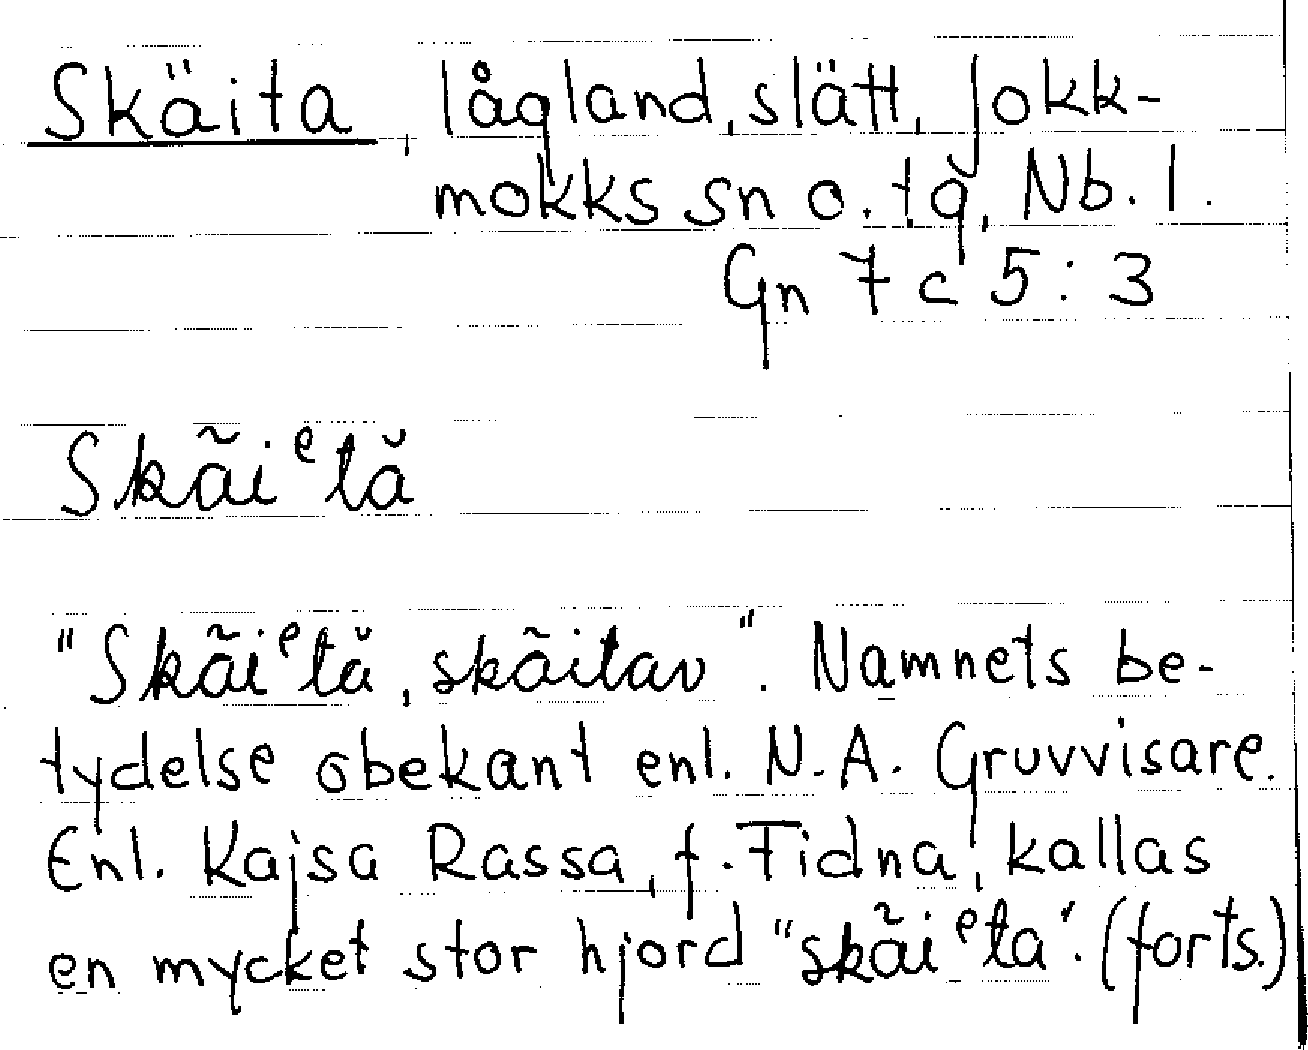 Skäita, lågland, slätt, Jokk-
mokks sn o. tg, Nb. l.
Gn 7 c 5 : 3
Skãiᵉtă
"Skãiᵉtă, skãitav". Namnets be-
tydelse obekant enl. N.A. Gruvvisare.
Enl. Kajsa Rassa, f. Tidna, kallas
en mycket stor hjord "skãiᵉta". (forts.)